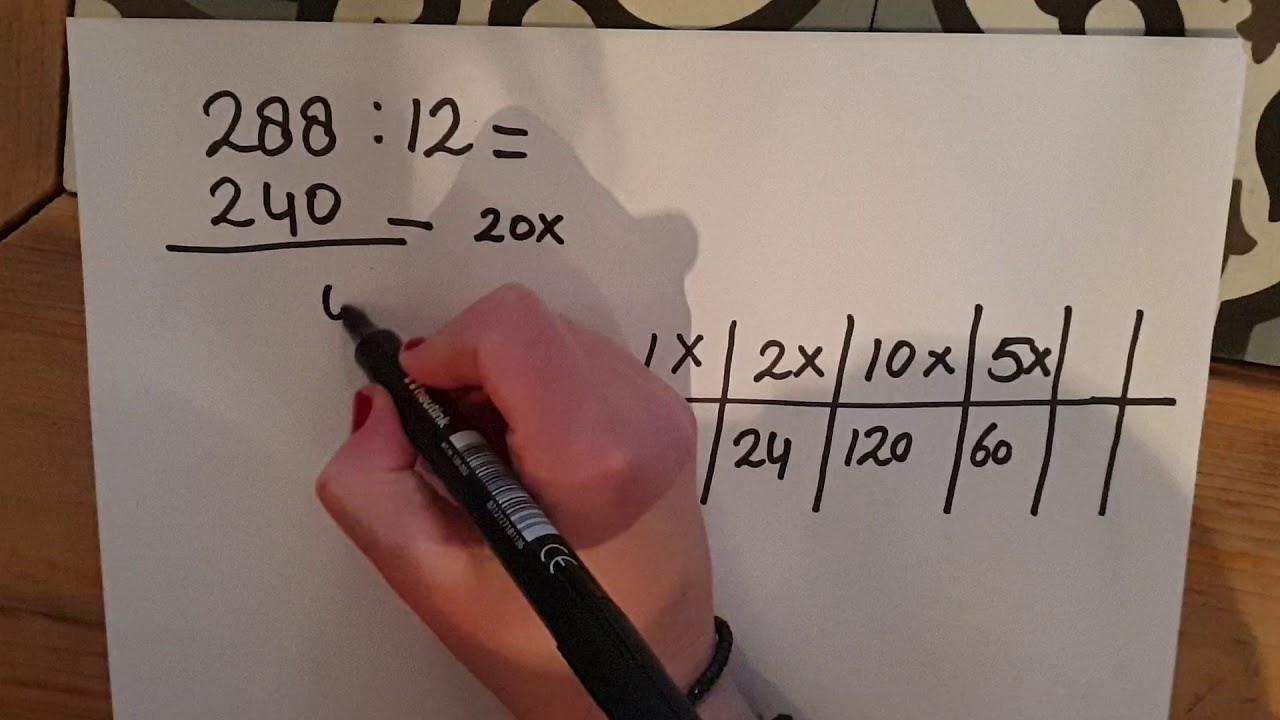 288 : 12 =
240 — 20x
1x 2x 10x 5x
24 120 60
CE